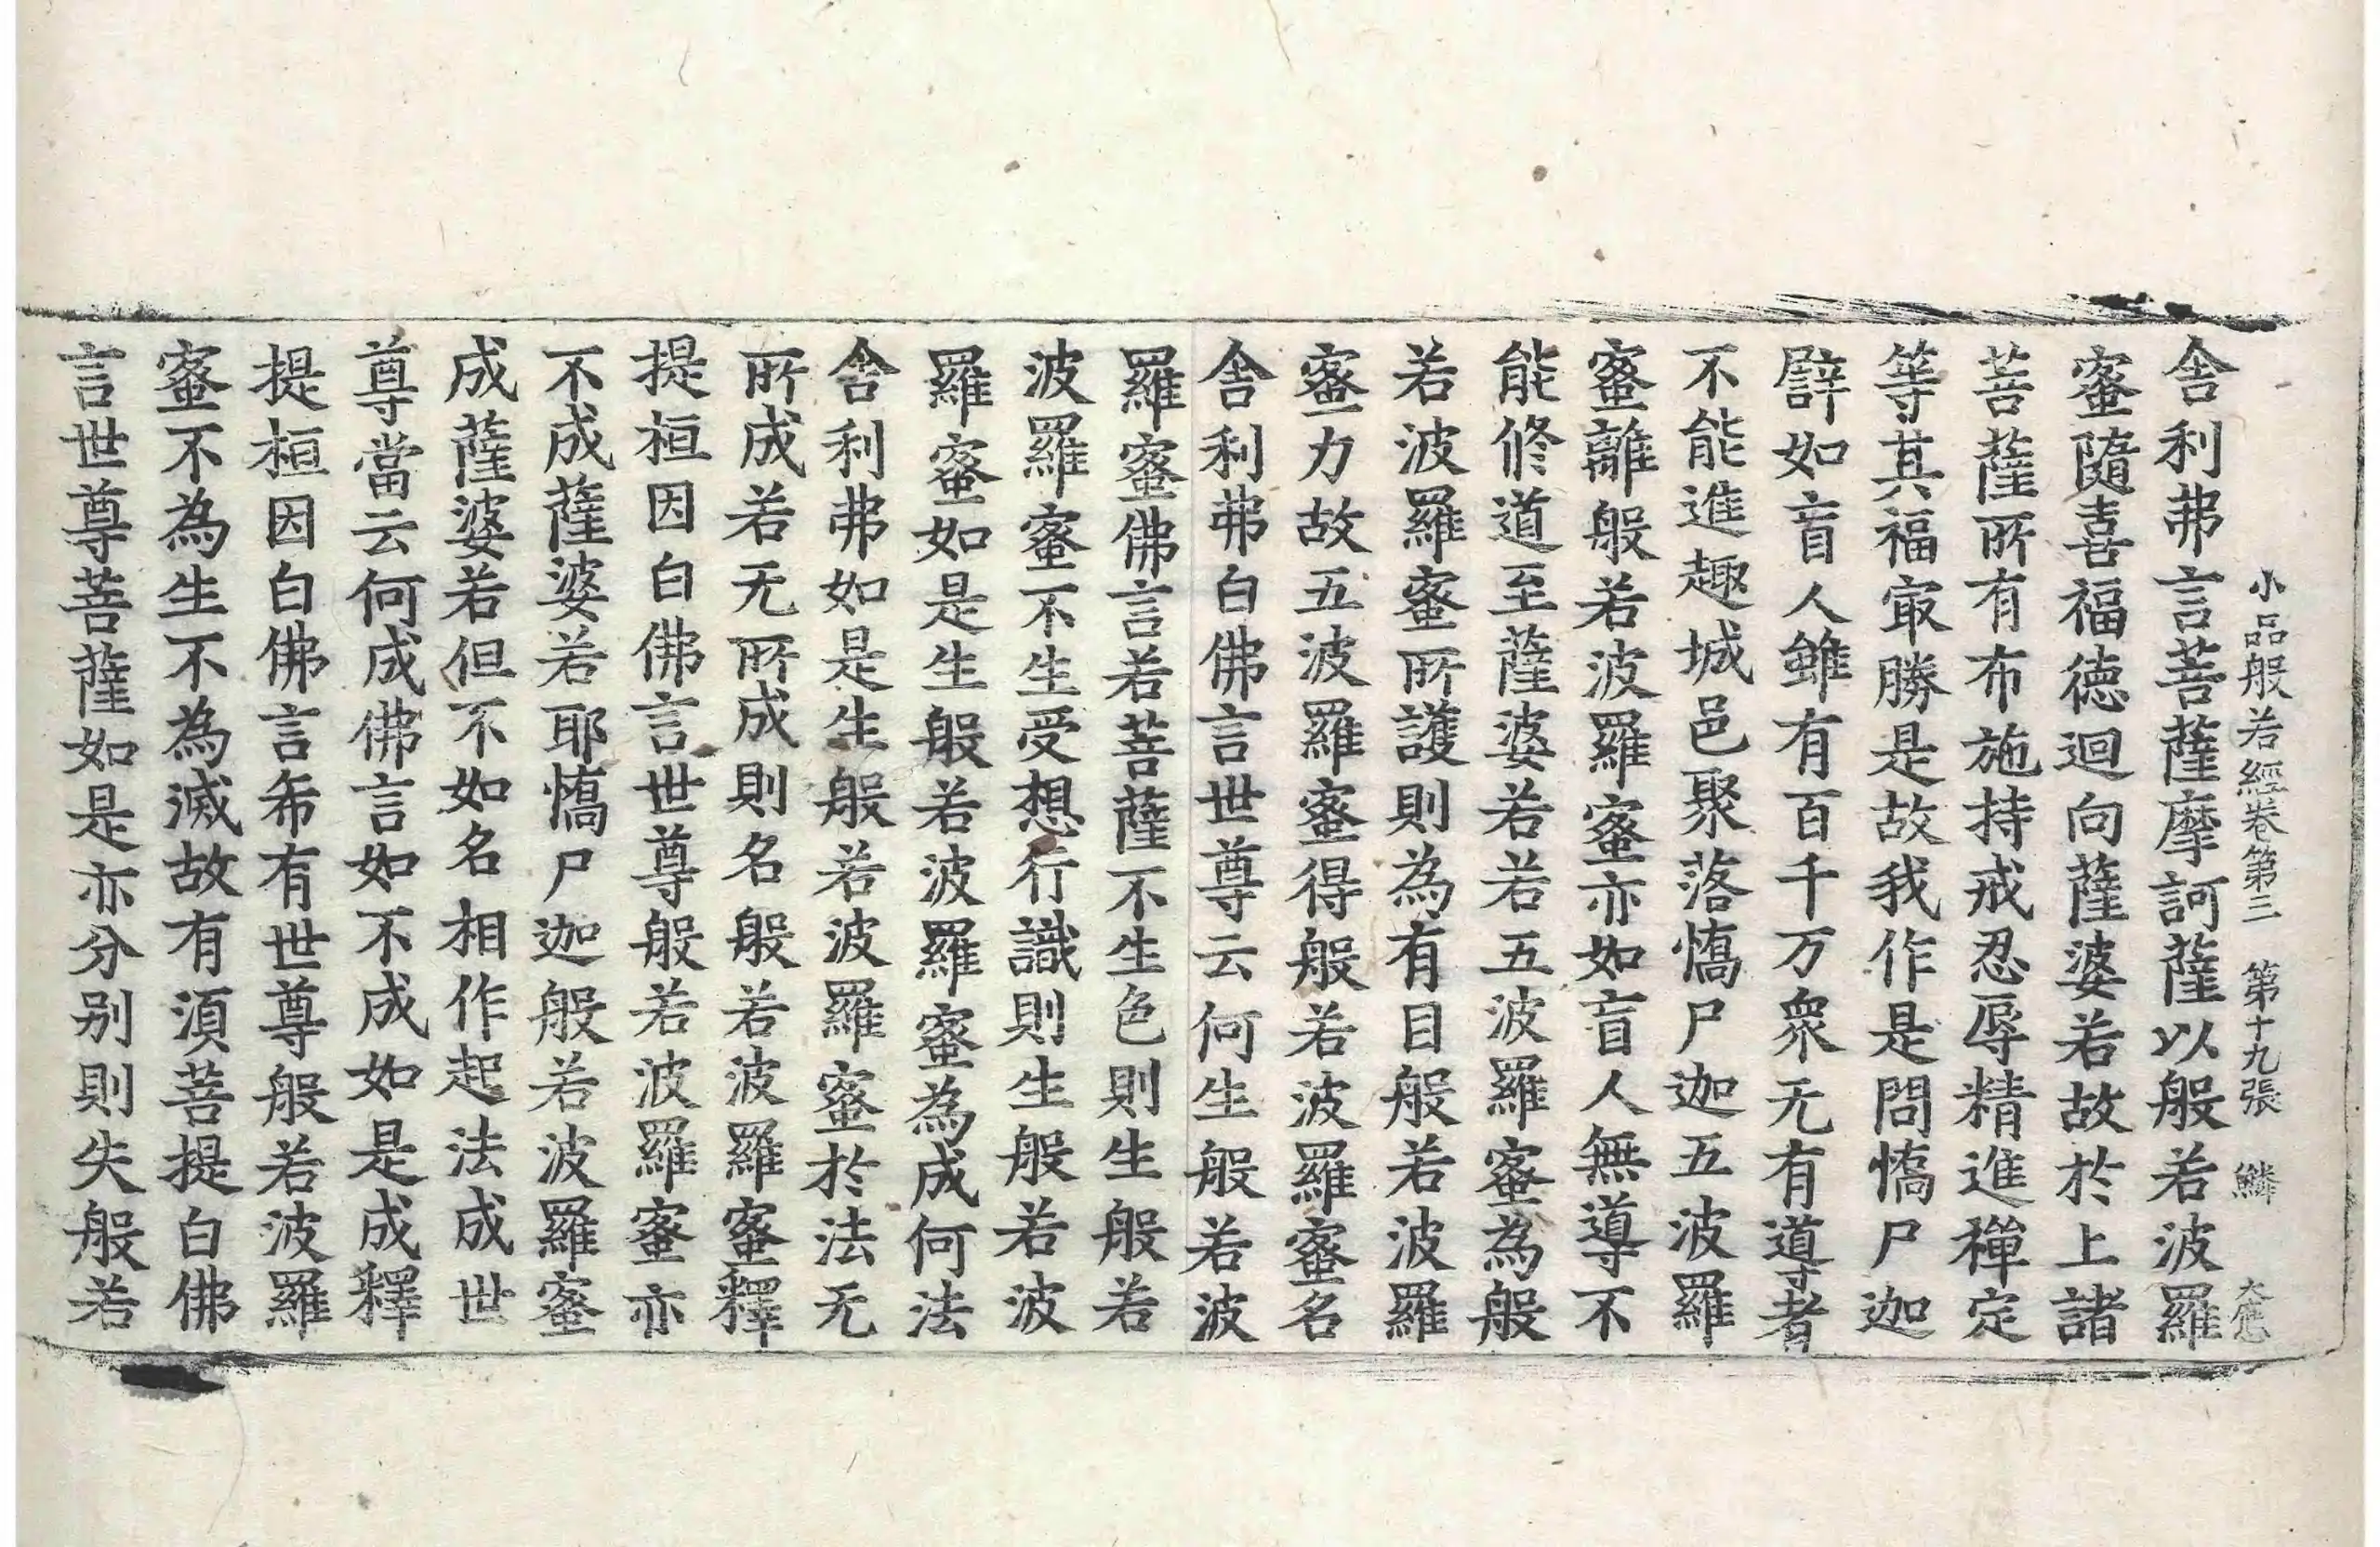 小品般若經卷第三 第十九張 鱗 大應
舍利弗言菩薩摩訶薩以般若波羅
蜜隨喜福德迴向薩婆若故於上諸
菩薩所有布施持戒忍辱精進禪定
等其福㝡勝是故我作是問憍尸迦
譬如盲人雖有百千万衆无有導者
不能進趣城邑聚落憍尸迦五波羅
蜜離般若波羅蜜亦如盲人無導不
能修道至薩婆若若五波羅蜜為般
若波羅蜜所護則為有目般若波羅
蜜力故五波羅蜜得般若波羅蜜名
舍利弗白佛言世尊云何生般若波
羅蜜佛言若菩薩不生色則生般若
波羅蜜不生受想行識則生般若波
羅蜜如是生般若波羅蜜為成何法
舍利弗如是生般若波羅蜜於法无
所成若无所成則名般若波羅蜜釋
提桓因白佛言世尊般若波羅蜜亦
不成薩婆若耶憍尸迦般若波羅蜜
成薩婆若但不如名相作起法成世
尊當云何成佛言如不成如是成釋
提桓因白佛言希有世尊般若波羅
蜜不為生不為滅故有須菩提白佛
言世尊菩薩如是亦分別則失般若